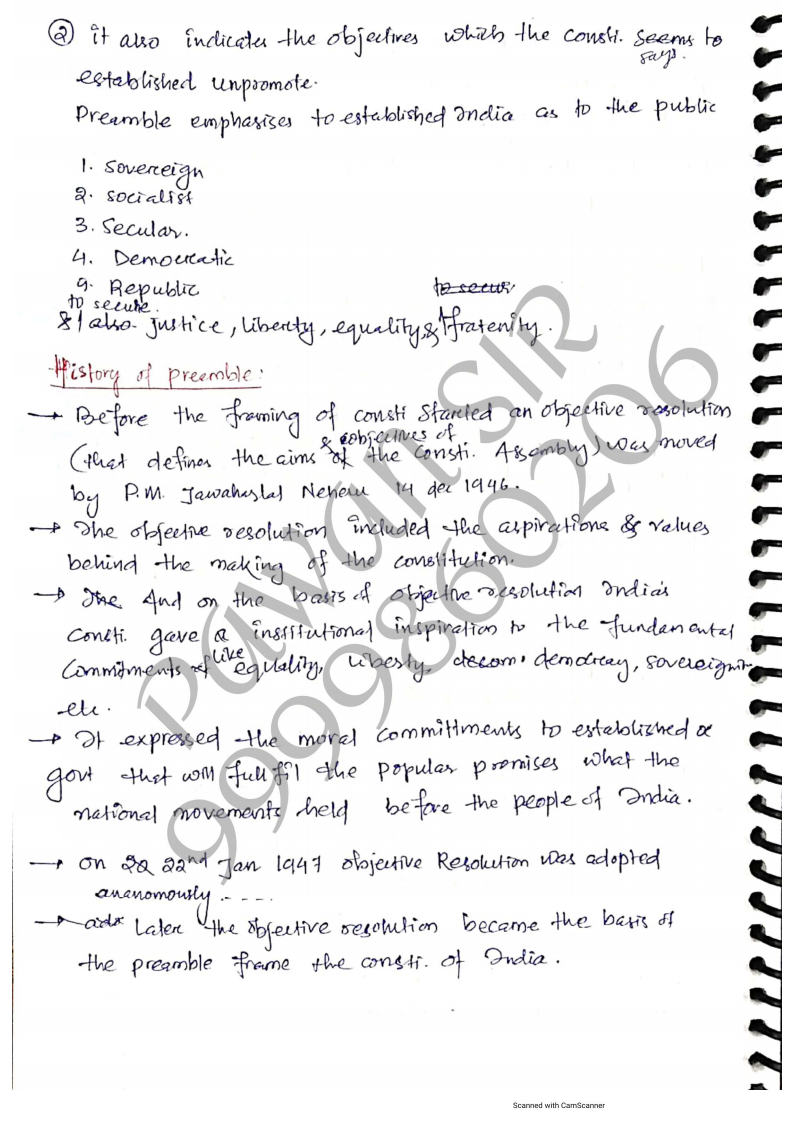 ② it also indicates the objectives which the consti. seems to
says.
established unpromote.
Preamble emphasises to established India as to the public
1. Sovereign
2. socialist
3. Secular.
4. Democratic
9. Republic
to secure.
to secur
& also justice, liberty, equality, & fratenity.
History of preamble:
→ Before the framing of consti Started an objective resolution
& objectives of
(that defines the aims of the consti. Assembly) was moved
by P.M. Jawaharlal Neheru 14 dec 1946.
→ The objective resolution included the aspirations & values
behind the making of the constitution.
→ The And on the basis of objective resolution India's
Consti. gave a institutional inspiration to the fundamental
commitments of like equality, liberty, decom. democracy, sovereignity
etc.
→ It expressed the moral committments to established a
govt that will fullfil the popular promises what the
national movements held before the people of India.
→ on 22 22nd Jan 1947 objective Resolution was adopted
ananomously . - - - -
→ Later the objective resolution became the basis of
the preamble frame the consti. of India.
Pawan SIR
9999860206
Scanned with CamScanner